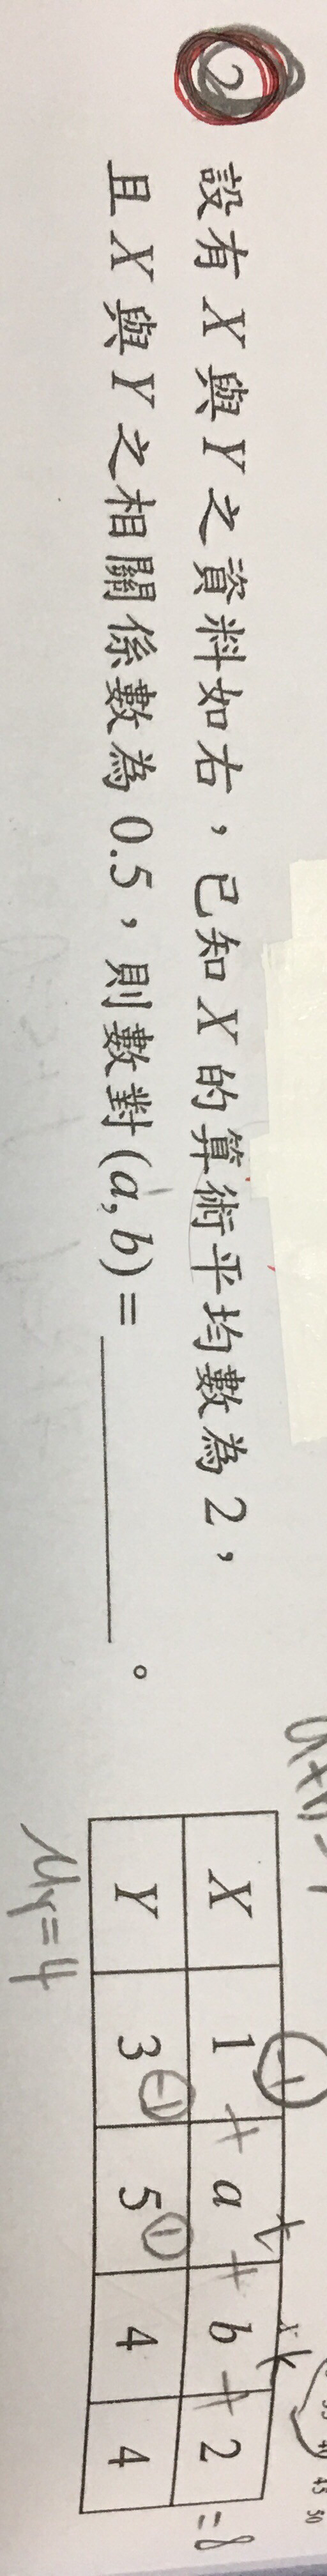 2
設有 X 與 Y 之資料如右，已知 X 的算術平均數為 2，
且 X 與 Y 之相關係數為 0.5，則數對(a, b)=＿＿＿＿＿。
X 1 + a + b + 2 = 8
Y 3 -1 5 1 4 4
μy=4
-1
45 50